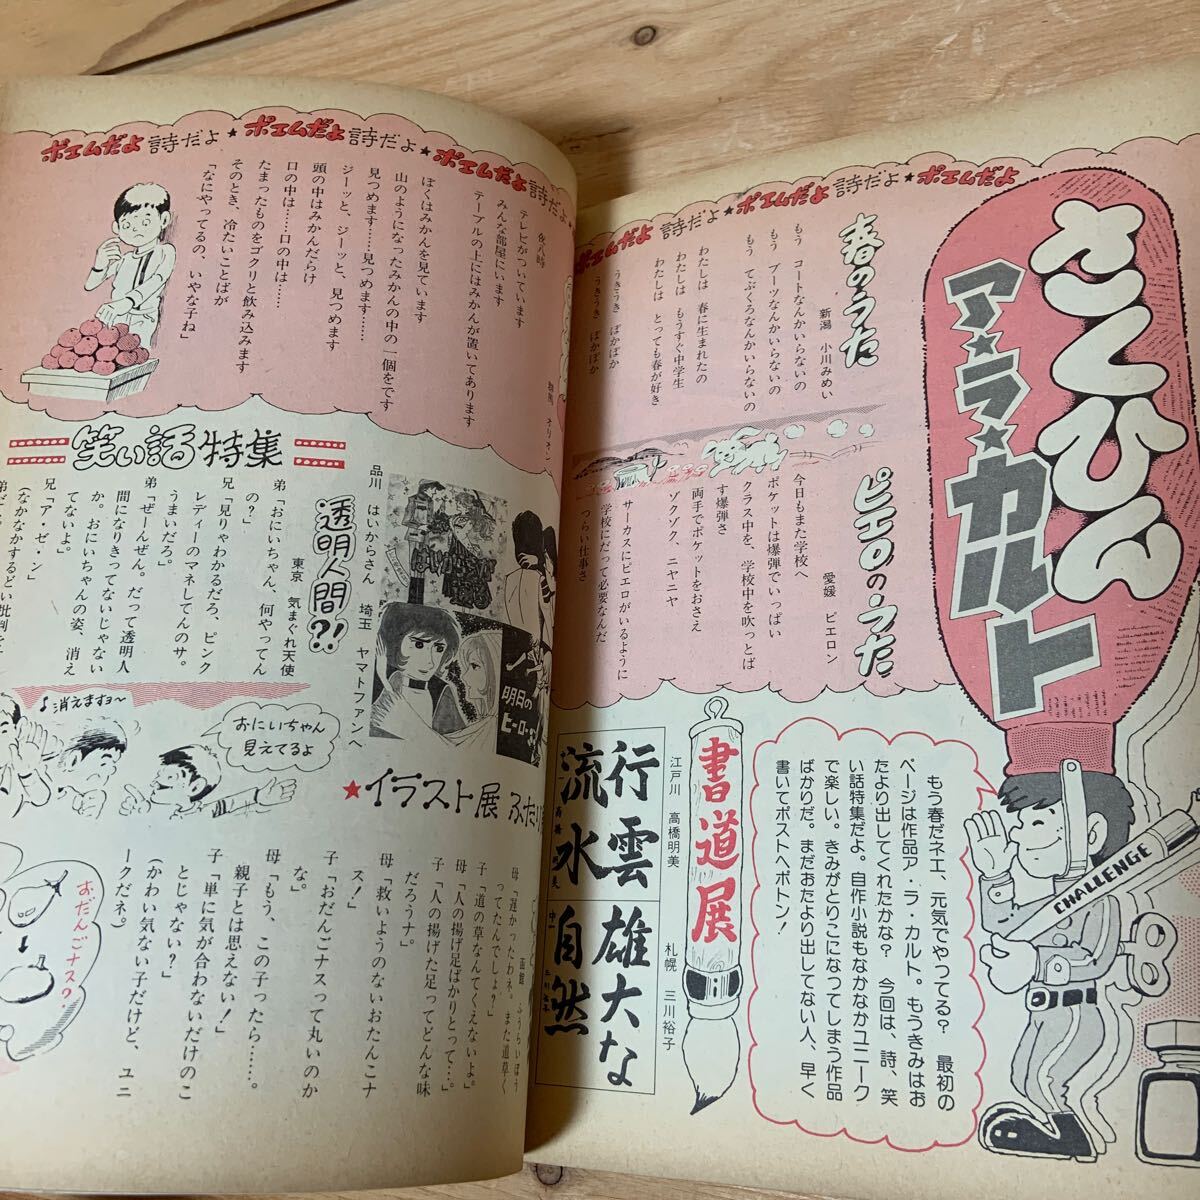 ポエムだよ 詩だよ★ポエムだよ 詩だよ★ポエムだよ
さくひん
ア★ラ★カルト
CHALLENGE
春のうた
新潟 小川みめい
もう コートなんかいらないの
もう ブーツなんかいらないの
もう てぶくろなんかいらないの
わたしは 春に生まれたの
わたしは もうすぐ中学生
わたしは とっても春が好き
うきうき ぽかぽか
うきうき ぽかぽか
ピエロのうた
愛媛 ピエロン
今日もまた学校へ
ポケットは爆弾でいっぱい
クラス中を、学校中を吹っとば
す爆弾さ
両手でポケットをおさえ
ゾクゾク、ニヤニヤ
サーカスにピエロがいるように
学校にだって必要なんだ
つらい仕事さ
もう春だネエ、元気でやってる? 最初の
ページは作品ア・ラ・カルト。もうきみはお
たより出してくれたかな? 今回は、詩、笑
い話特集だよ。自作小説もなかなかユニーク
で楽しい。きみがとりこになってしまう作品
ばかりだ。まだおたより出してない人、早く
書いてポストへポトン!
書道展
江戸川 高橋明美
札幌 三川裕子
行雲
流水
雄大な
自然
ポエムだよ 詩だよ★ポエムだよ 詩だよ★ポエムだよ 詩だよ
夜八時
テレビがついています
みんな部屋にいます
テーブルの上にはみかんが置いてあります
ぼくはみかんを見ています
山のようになったみかんの中の一個をです
見つめます……見つめます……
ジーッと、ジーッと、見つめます
頭の中はみかんだらけ
口の中は……口の中は……
たまったものをゴクリと飲み込みます
そのとき、冷たいことばが
「なにやってるの、いやな子ね」
笑い話特集
透明人間?!
東京 気まぐれ天使
弟「おにいちゃん、何やってん
の?」
兄「見りゃわかるだろ、ピンク
レディーのマネしてんのサ。
うまいだろ。」
弟「ぜーんぜん。だって透明人
間になりきってないじゃない
か。おにいちゃんの姿、消え
てないよ。
兄「ア・ゼ・ン」
(なかなかするどい批判
品川 はいからさん
埼玉 ヤマトファンへ
明日の
ヒーロー
♪消えますョ〜
おにいちゃん
見えてるよ
★イラスト展
函館
母「遅かったわネ。また道草く
ってたんでしょ?」
子「道の草なんてくえないよ。」
母「人の揚げ足ばかりとって…。」
子「人の揚げた足ってどんな味
だろうナ。」
母「救いようのないおたんこナ
ス!」
子「おだんごナスって丸いのか
な。」
母「もう、この子ったら……。
親子とは思えない!」
子「単に気が合わないだけのこ
とじゃない?」
(かわい気ない子だけど、ユニ
ークだネ。)
おだんごナス?